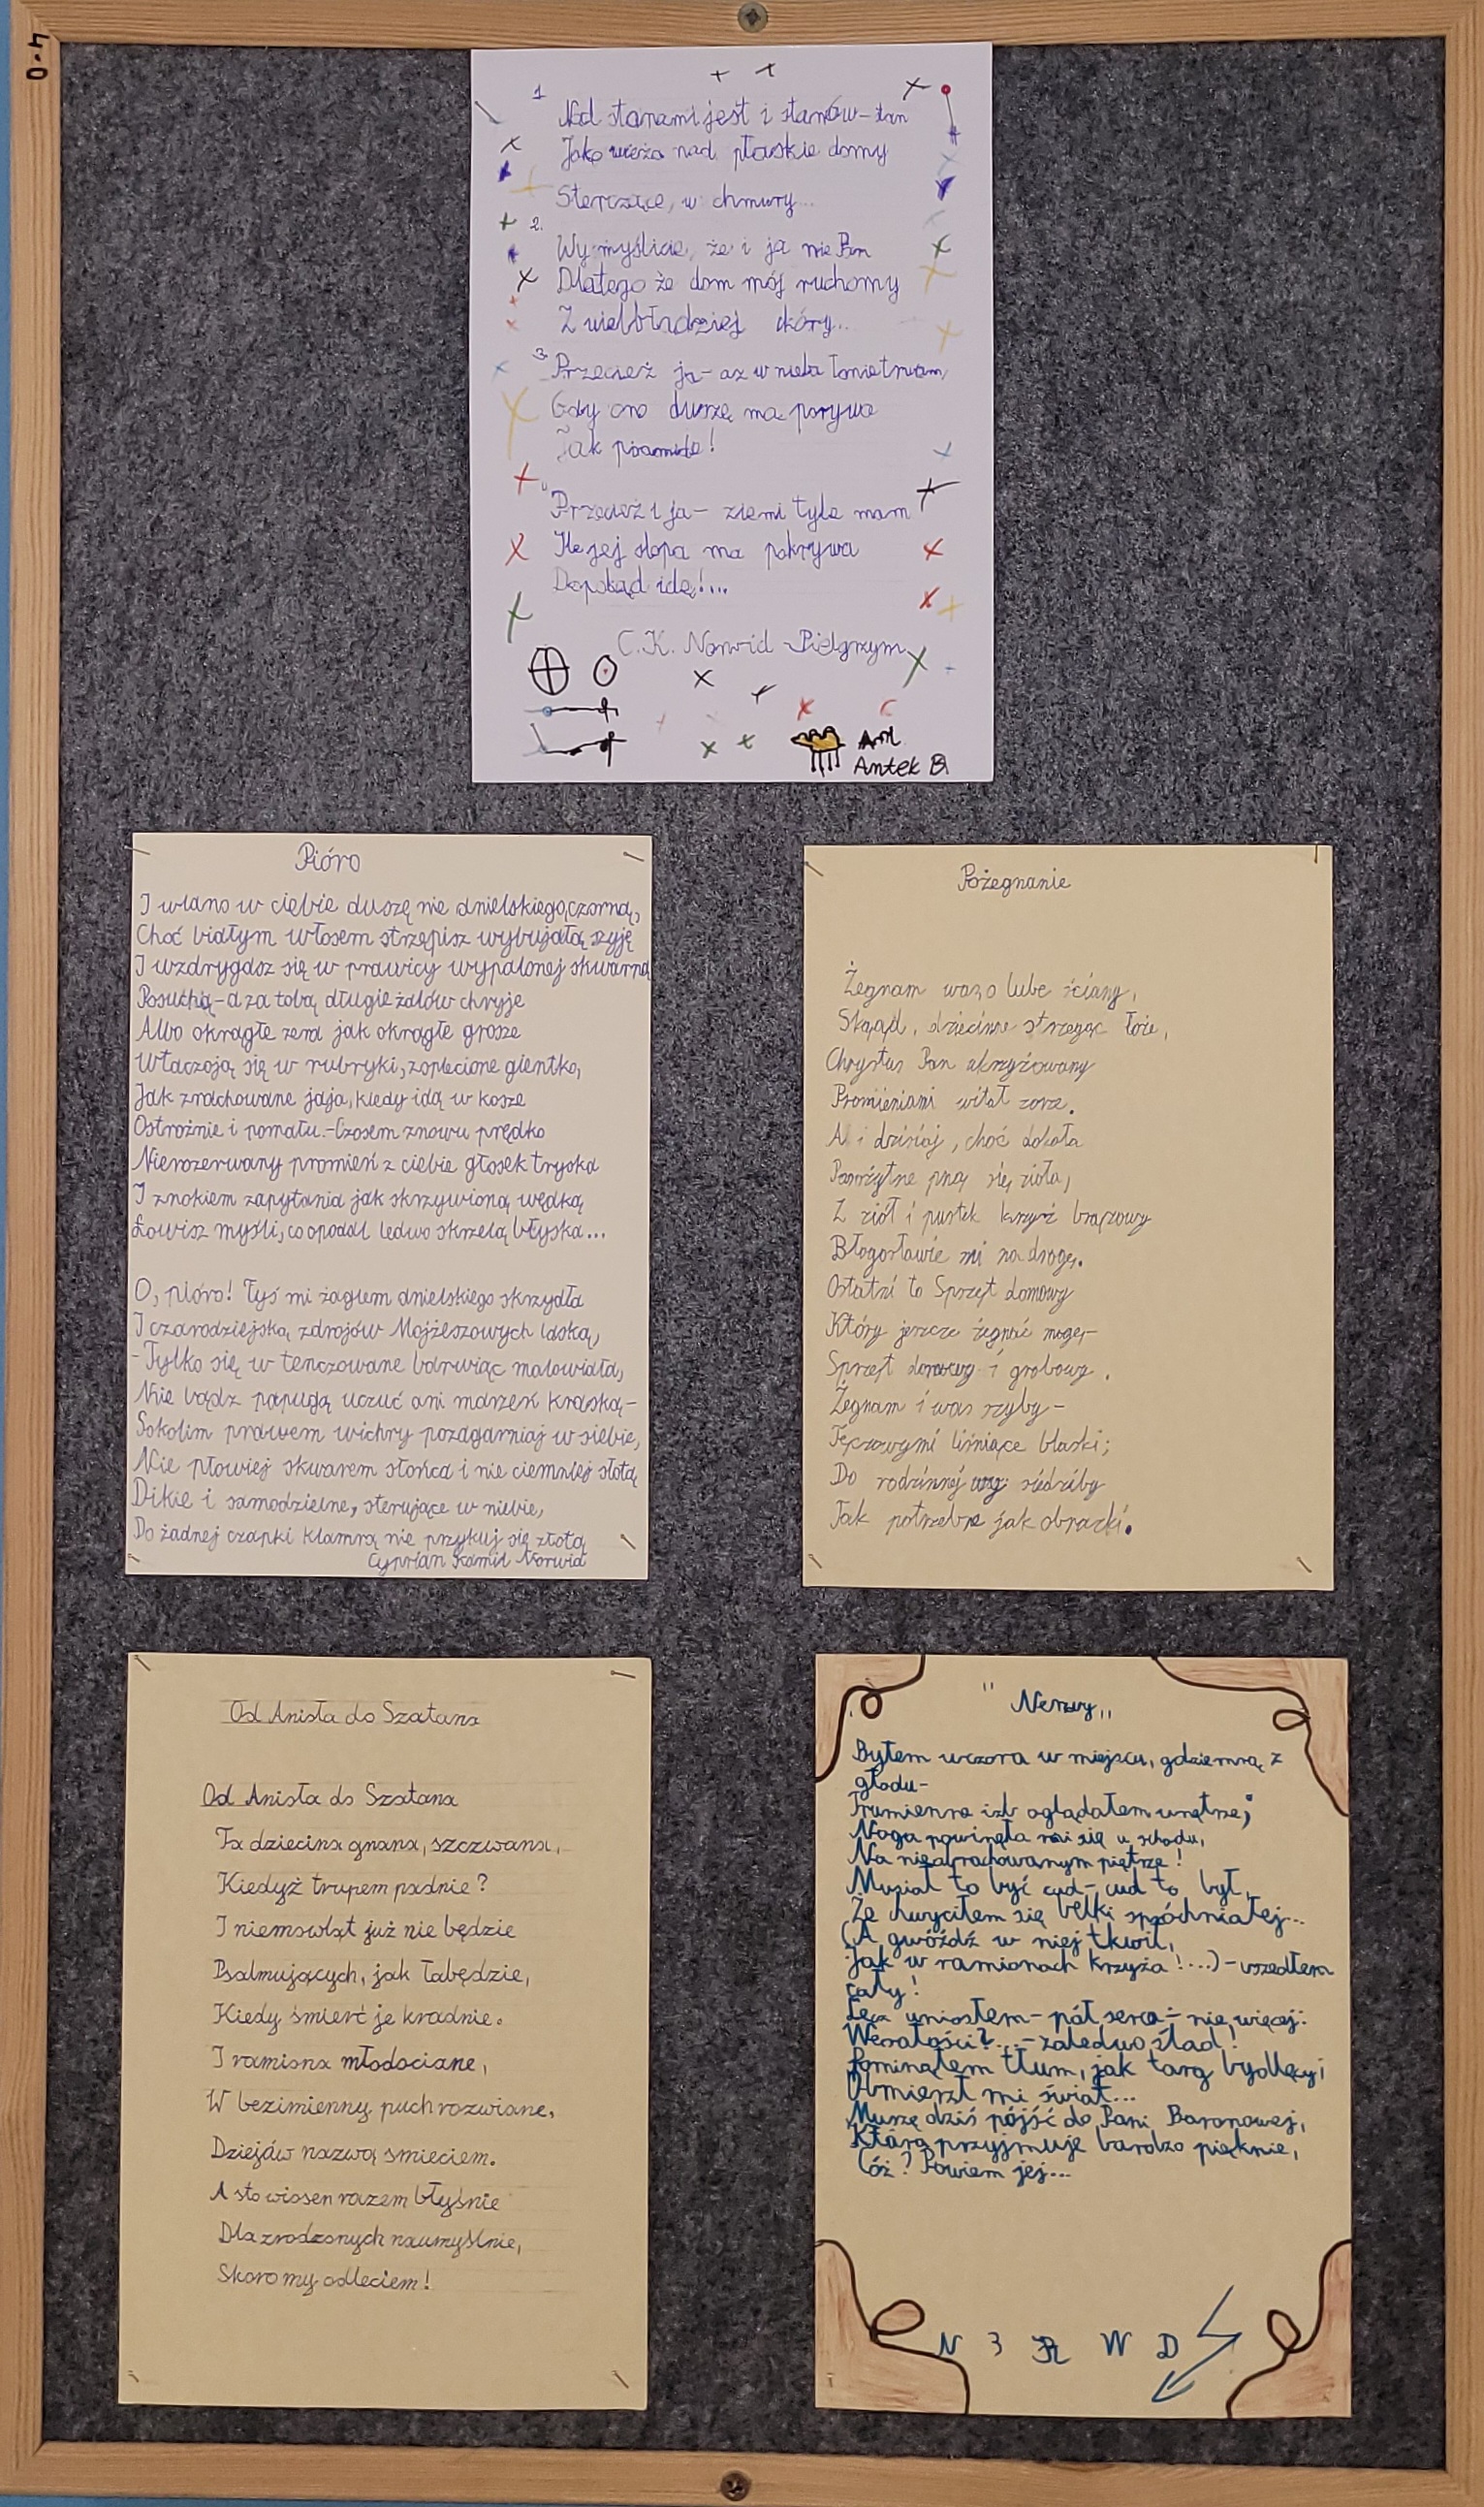 4.0
1
Nad stanami jest i stanów-stan
Jako wieża nad płaskie domy
Stercząca, w chmury...
2.
Wy myślicie, że i ja nie Pan
Dlatego że dom mój ruchomy
Z wielbłądziej skóry...
3.
Przecież ja- aż w nieba łonie trwam,
Gdy ono duszę ma porywa
Jak piramidę!
Przecież i ja- ziemi tyle mam
Ile jej stopa ma pokrywa
Dopokąd idę!...
C.K. Norwid -Pielgrzym
Antek B
Pióro
I wlano w ciebie duszę nie anielskiego, czarną,
Choć białym włosem strzępisz wybujałą szyję
I wzdrygasz się w prawicy wypalonej skwarną
Posuchą-a za tobą długie żalów chryje
Albo okrągłe zera jak okrągłe grosze
Wtaczają się w rubryki, zaplecione giętko,
Jak zrachowane jaja, kiedy idą w kosze
Ostrożnie i pomału.-Czasem znowu prędko
Nierozerwany promień z ciebie głosek tryska
I znakiem zapytania jak skrzywioną wędką
Łowisz myśli, co opodal ledwo skrzelą błyska...
O, pióro! Tyś mi żaglem anielskiego skrzydła
I czarodziejską zdrojów Mojżeszowych laską,
-Tylko się w tęczowane barwiąc malowidła,
Nie bądź papugą uczuć ani marzeń kraską-
Sokolim prawem wichry pozagarniaj w siebie,
Nie płowiej skwarem słońca i nie ciemniej słotą
Dikie i samodzielne, sterujące w niebie,
Do żadnej czapki klamrą nie przykuj się złotą
Cyprian Kamil Norwid
Pożegnanie
Żegnam was, o lube ściany,
Skąąd, dziecinne strzegąc łoże,
Chrystus Pan ukrzyżowany
Promieniami witał zorze.
A i dzisiaj, choć dokoła
Pasożytne pną się zioła,
Z ziół i pustek krzyż brązowy
Błogosławie mi na drogę.
Ostatni to Sprzęt domowy
Który jeszcze żegnać mogę-
Sprzęt domowy i grobowy.
Żegnam i was szyby-
Tęczowymi lśniące blaski;
Do rodzinnej siedziby
Jak potrzebne jak obrazki.
Od Anioła do Szatana
Od Anioła do Szatana
Ta dziecina gnana, szczwana,
Kiedyż trupem padnie?
I niemowląt już nie będzie
Psalmujących, jak łabędzie,
Kiedy śmierć je kradnie.
I ramiona młodociane,
W bezimienny puch rozwiane,
Dziejów nazwą śmieciem.
A sto wiosen razem błyśnie
Dla zrodzonych naumyślnie,
Skoro my odleciem!
"Nerwy,,
Byłem wczora w miejscu, gdzie mrą z
głodu-
Trumienne izb oglądałem wnętrze;
Noga powinęła mi się u schodu,
Na nieobrachowanym piętrze!
Musiał to być cud- cud to był,
Że chwyciłem się belki spróchniałej...
(A gwóźdź w niej tkwił,
Jak w ramionach krzyża!...)- uszedłem
cały!
Lecz uniosłem- pół serca- nie więcej:
Wesołości?...- zaledwo ślad!
Pominąłem tłum, jak targ bydlęcy;
Obmierzł mi świat...
Muszę dziś pójść do Pani Baronowej,
Która przyjmuje bardzo pięknie,
Cóż? Powiem jej...
N 3 R W D